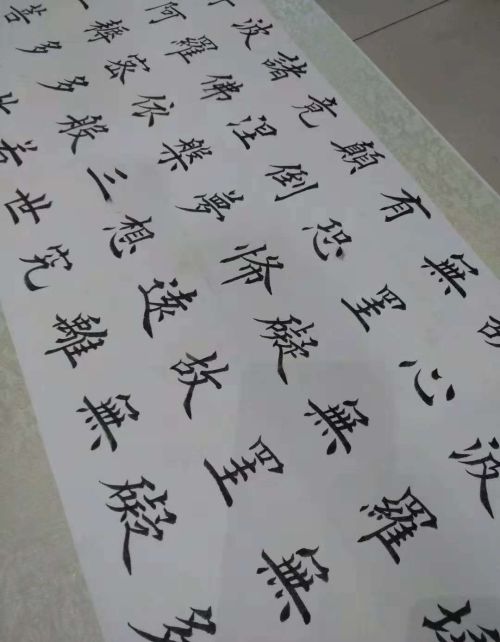 波羅無多
故心無罣礙
無罣礙故無
有恐怖遠離
顛倒夢想究
竟涅槃三世
諸佛依般若
波羅密多
阿耨多
菩